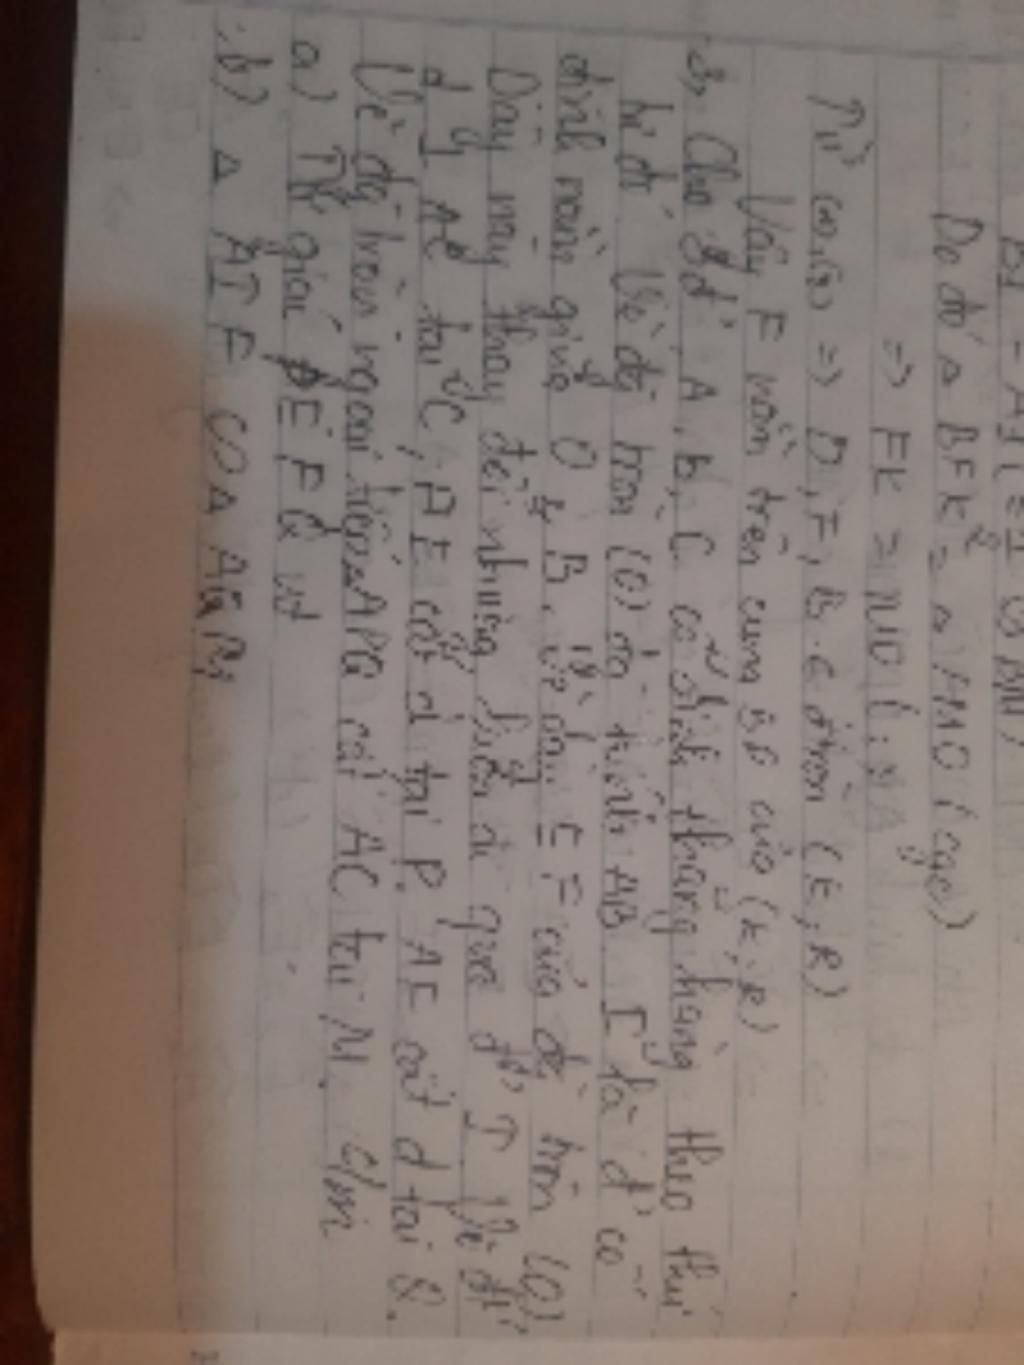 Do đó △ BFK = △ HMO (cgc)
=> FK = MO
Từ (1), (2) => D, F, B, C đtròn (K, R)
Vậy F nằm trên cung BC của (K, R)
3, Cho 3 đ' A, B, C cố định thẳng hàng theo thứ
tự đó Vẽ đg tròn (O) đg kính AB I là đ' cố
định nằm giữa O & B. Vẽ dây EF của đg tròn (O)
Dây này thay đổi nhưng luôn đi qua đ' I Vẽ đt'
d ⊥ AC tại C, AE cắt d tại P. AF cắt d tại Q.
Vẽ đg tròn ngoại tiếp △APQ cắt AC tại M. C/m
a) Tứ giác PEFQ nt
b) △ AIF ∽ △ AQM